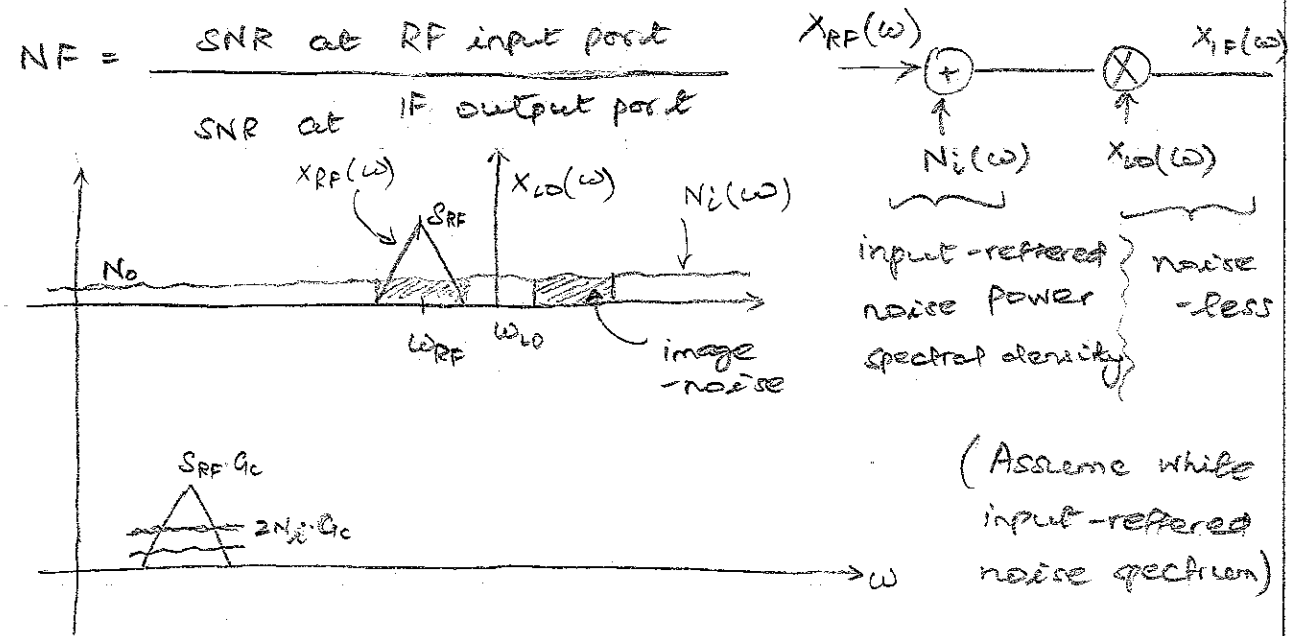 NF = SNR at RF input port
SNR at IF output port
X_RF(ω)
X_IF(ω)
+
X
N_i(ω)
X_LO(ω)
input-reffered
noise power
spectral density
noise
-less
X_RF(ω)
S_RF
X_LO(ω)
N_i(ω)
N_o
ω_RF
ω_LO
image
-noise
S_RF·G_c
2N_i·G_c
ω
(Assume white
input-reffered
noise spectrum)